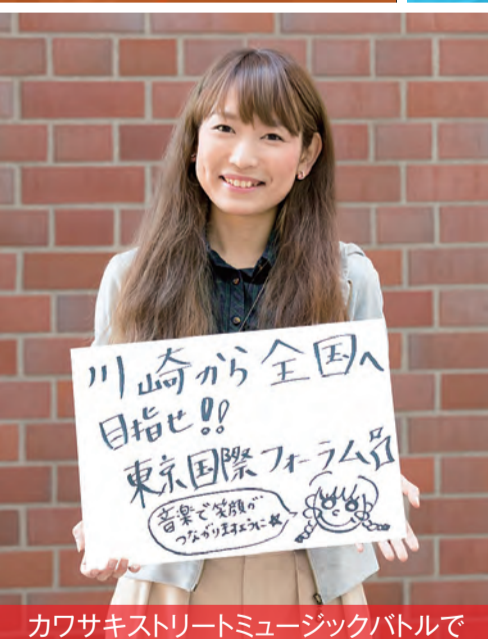 川崎から全国へ
目指せ!!
東京国際フォーラム
音楽で笑顔が
つながりますように☆
カワサキストリートミュージックバトルで